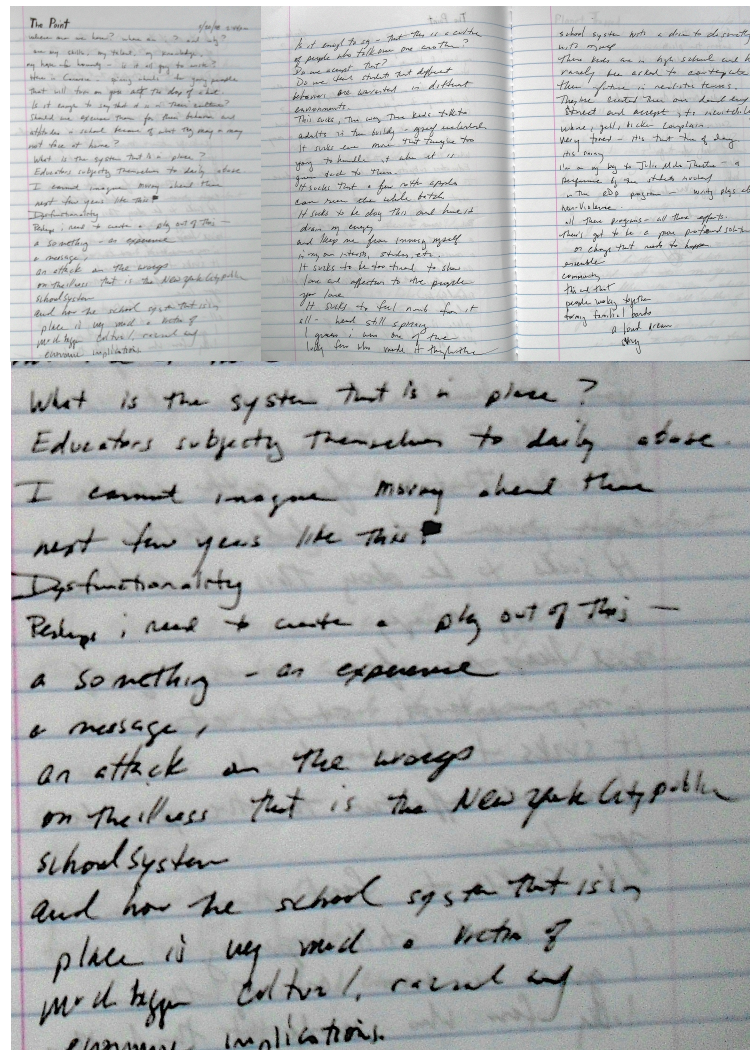 The Point
Is it enough to say that it is in their culture?
Should we excuse them for their behavior and
attitudes in school because of what they may or may
not face at home?
What is the system that is in place?
Educators subjecting themselves to daily abuse
I cannot imagine moving ahead these
next few years like this
Dysfunctionality
Perhaps i need to create a play out of this —
a something — an experience
a message,
an attack on the wrongs
on the illness that is the New York City public
school system
and how the school system that is in
place is very much a victim of
much bigger cultural, racial and
economic implications.
The Point
Is it enough to say — that this is a culture
of people who talk over one another?
Do we accept that?
Do we teach students that different
behaviors are warranted in different
environments
This sucks, the way these kids talk to
adults in the building — myself included
It sucks even more that they're too
young to handle it when it is
given back to them.
It sucks that a few rotten apples
can ruin the whole batch
It sucks to be doing this and have it
drain my energy
and keep me from immersing myself
in my own interests, studies, etc.
It sucks to be too tired to show
love and affection to the people
you love
It sucks to feel numb from it
all — head still spinning
I guess i was one of the
lucky few who made it through the
school system with a dream to do something
with myself
These kids are in high school and
rarely been asked to contemplate
their future in realistic terms.
They've created their own
and accept its
whine, yell, bicker complain.
Very tired — it's that time of day
it's noisy
I'm on my way to Julia Miles Theatre — a
performance by the students involved
in the program — writing plays about
non-violence.
all these programs — all these efforts.
There's got to be a more profound solution
or change that needs to happen
ensemble
community
the idea that
people working together
forming familial bonds
a good dream
What is the system that is in place?
Educators subjecting themselves to daily abuse.
I cannot imagine moving ahead these
next few years like this
Dysfunctionality
Perhaps i need to create a play out of this —
a something — an experience
a message,
an attack on the wrongs
on the illness that is the New York City public
school system
and how the school system that is in
place is very much a victim of
much bigger cultural, racial and
economic implications.